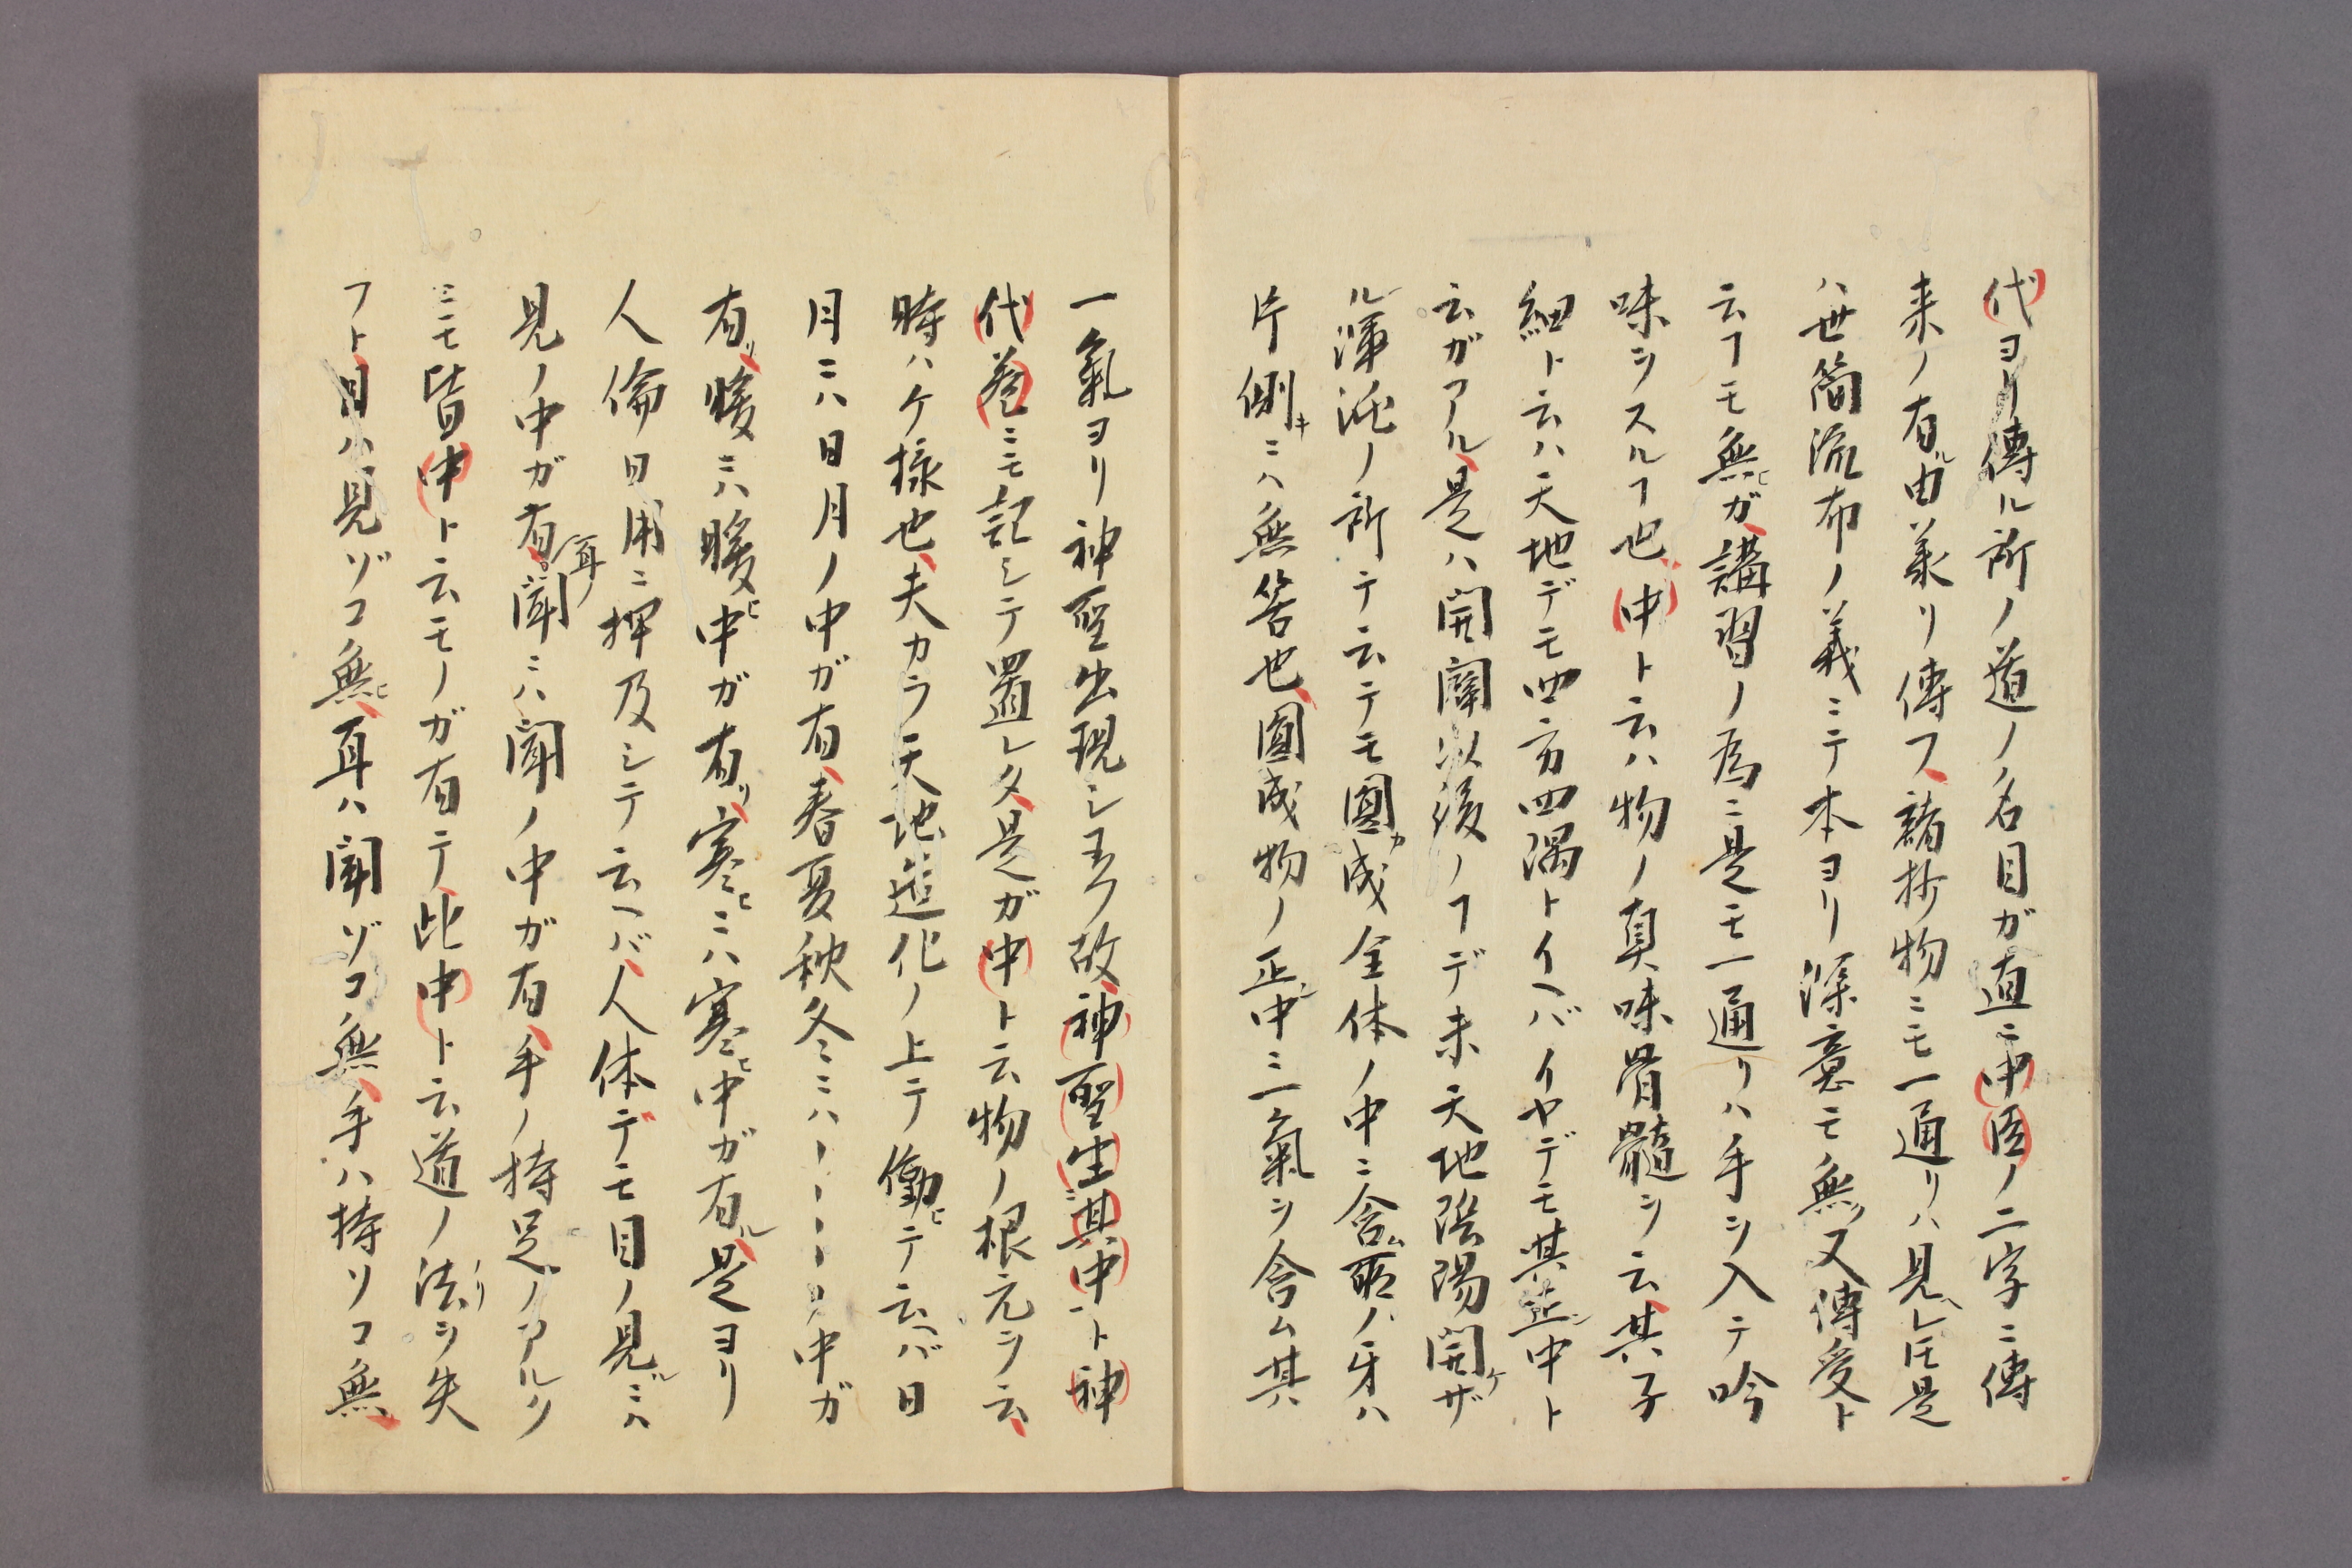 代ヨリ傳ル所ノ道ノ名目ガ直ニ中臣ノ二字ニ傳
来ノ有ル由来リ傳フ諸抄物ニモ一通リハ見ヘレ𪜈是
ハ世簡流布ノ義ニテ本ヨリ深意モ無ソ又傳受ト
云フモ無ヒガ講習ノ為ニ是モ一通リハ手ヲ入テ吟
味ヲスルヿ也中ト云ハ物ノ真味骨髓ヲ云其子
細ト云ハ天地デモ四方四隅トイヘバイヤデモ其正中ト
云ガアル是ハ開闢以後ノヿデ未天地陰陽開ケザ
ル渾沌ノ所テ云テモ圓カ成全体ノ中ニ含ム所ノ牙ハ
片側キニハ無筈也圓成物ノ正中ニ一氣ヲ含ム其
一氣ヨリ神聖出現シ玉フ故神聖生其中ト神
代巻ニモ記シテ置レタ是ガ中ト云物ノ根元ヲ云
時ハケ様也夫カラ天地造化ノ上テ働ヒテ云ヘバ日
月ニハ日月ノ中ガ有春夏秋冬ニハヽヽヽヽノ中ガ
有リ暖ニハ暖ヒ中ガ有リ寒ヒニハ寒ヒ中ガ有ル是ヨリ
人倫日用ニ押及シテ云ヘバ人体デモ目ノ見ルニハ
見ノ中ガ有耳ノ聞ニハ聞ノ中ガ有手ノ持足ノアルク
ニモ皆中ト云モノガ有テ此中ト云道ノ法ノリヲ失
フト目ハ見ゾコ無ヒ耳ハ聞ゾコ無手ハ持ソコ無